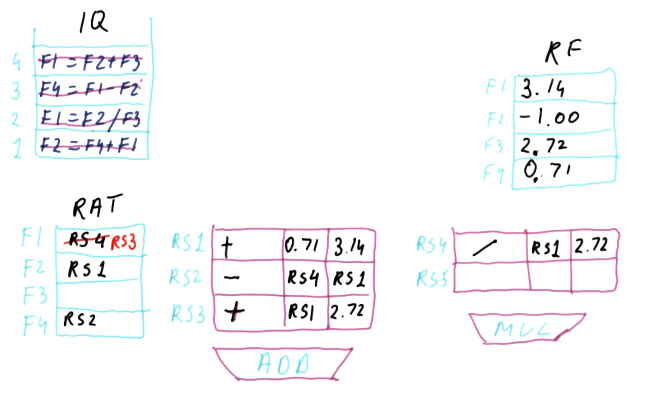 IQ
4 F1 = F2+F3
3 F4 = F1-F2
2 F1 = F2/F3
1 F2 = F4+F1
RF
F1 3.14
F2 -1.00
F3 2.72
F4 0.71
RAT
F1 RS4 RS3
F2 RS1
F3
F4 RS2
RS1 + 0.71 3.14
RS2 - RS4 RS1
RS3 + RS1 2.72
ADD
RS4 / RS1 2.72
RS5
MUL